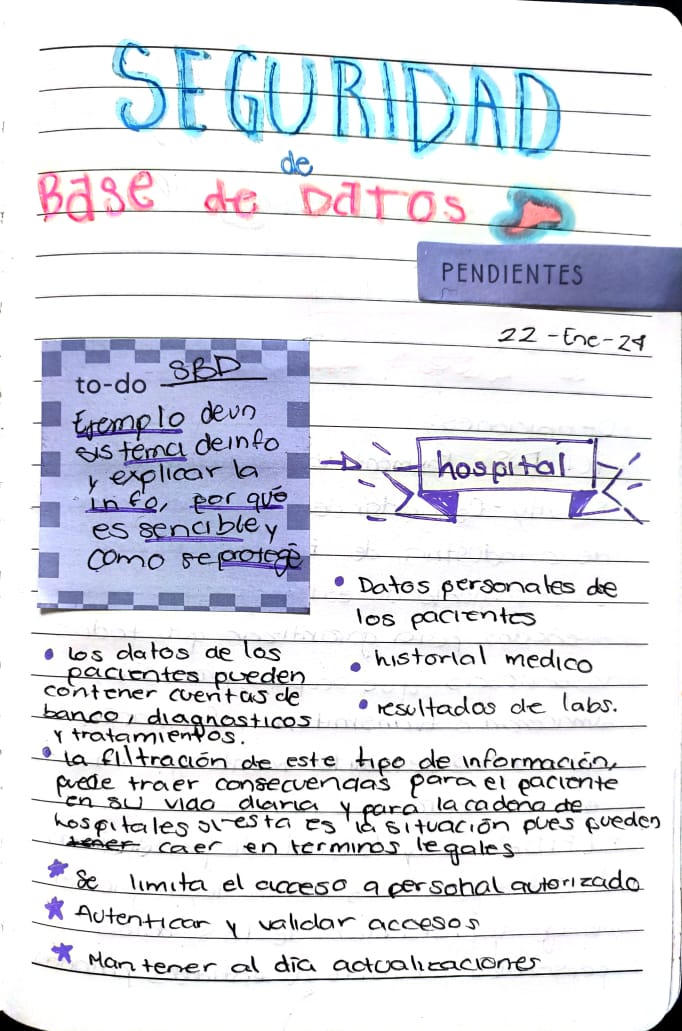 SEGURIDAD
de
Base de Datos
PENDIENTES
22-Ene-24
to-do SBD
Ejemplo de un
sistema de info
y explicar la
info, por qué
es sencible y
como se protege
hospital
• Datos personales de
los pacientes
• historial medico
• resultados de labs.
• los datos de los
pacientes pueden
contener cuentas de
banco, diagnosticos
y tratamientos.
• la filtración de este tipo de información,
puede traer consecuencias para el paciente
en su vida diaria y para la cadena de
hospitales si esta es la situación pues pueden
tener caer en terminos legales
★ Se limita el acceso a personal autorizado
★ Autenticar y validar accesos
★ Mantener al día actualizaciones